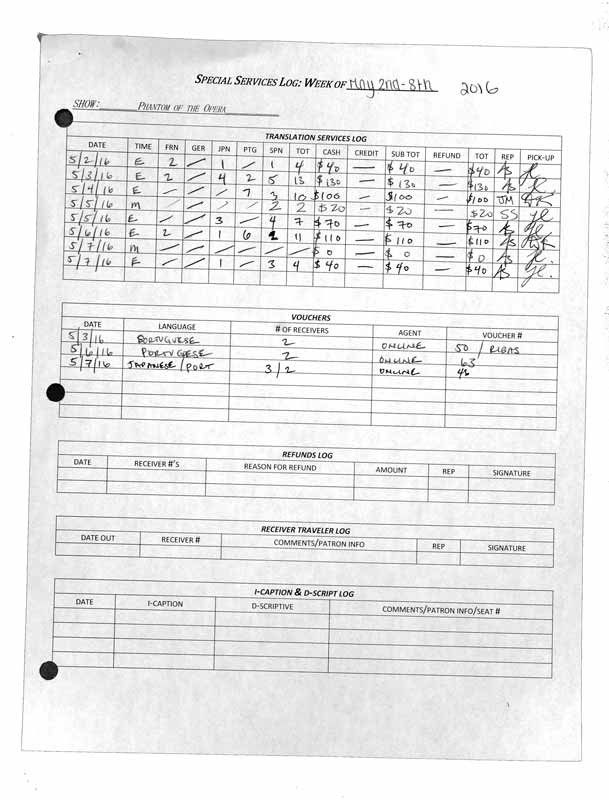 SPECIAL SERVICES LOG: WEEK OF May 2nd-8th 2016
SHOW: PHANTOM OF THE OPERA
TRANSLATION SERVICES LOG
DATE TIME FRN GER JPN PTG SPN TOT CASH CREDIT SUB TOT REFUND TOT REP PICK-UP
5/2/16 E 2 / 1 / 1 4 $40 — $40 — $40 AS
5/3/16 E 2 / 4 2 5 13 $130 — $130 — $130 AS
5/4/16 E / / / 7 3 10 $100 — $100 — $100 JM
5/5/16 M / / / / 2 2 $20 — $20 — $20 SS
5/5/16 E / / 3 / 4 7 $70 — $70 — $70 AS
5/6/16 E 2 / 1 6 2 11 $110 — $110 — $110 AS
5/7/16 M / / / / / / $0 — $0 — $0 AS
5/7/16 E / / 1 / 3 4 $40 — $40 — $40 AS
VOUCHERS
DATE LANGUAGE # OF RECEIVERS AGENT VOUCHER #
5/3/16 PORTUGUESE 2 ONLINE 50 / RIBAS
5/6/16 PORTUGUESE 2 ONLINE 63
5/7/16 JAPANESE / PORT 3/2 ONLINE
REFUNDS LOG
DATE RECEIVER #'S REASON FOR REFUND AMOUNT REP SIGNATURE
RECEIVER TRAVELER LOG
DATE OUT RECEIVER # COMMENTS/PATRON INFO REP SIGNATURE
I-CAPTION & D-SCRIPT LOG
DATE I-CAPTION D-SCRIPTIVE COMMENTS/PATRON INFO/SEAT #